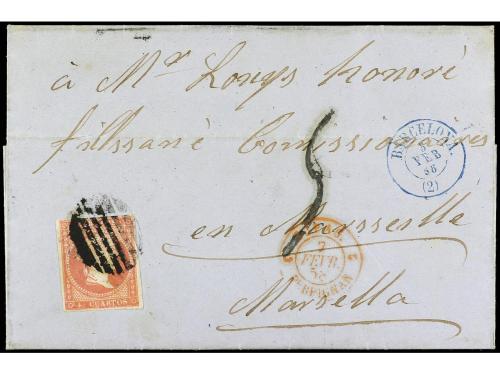 à Mr Louys honoré
fillssané Comissionaires
en Marsseille
Marsella
BARCELONA
5
FEB
56
(2)
7
FEVR.
56
PERPIGNAN
4 CUARTOS
5